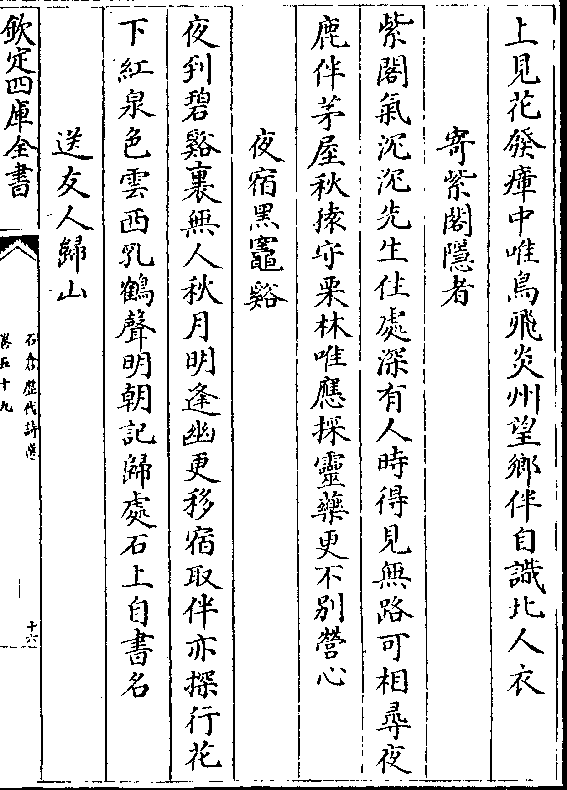 上見花發瘴中唯鳥飛炎州望鄉伴自識北人衣
寄紫閣隱者
紫閣氣沉沉先生住處深有人時得見無路可相尋夜
鹿伴茅屋秋猿守栗林唯應採靈藥更不別營心
夜宿黑竈谿
夜到碧谿裏無人秋月明逢幽更移宿取伴亦探行花
下紅泉色雲西乳鶴聲明朝記歸處石上自書名
送友人歸山
欽定四庫全書
石倉歷代詩選
卷五十九
十六